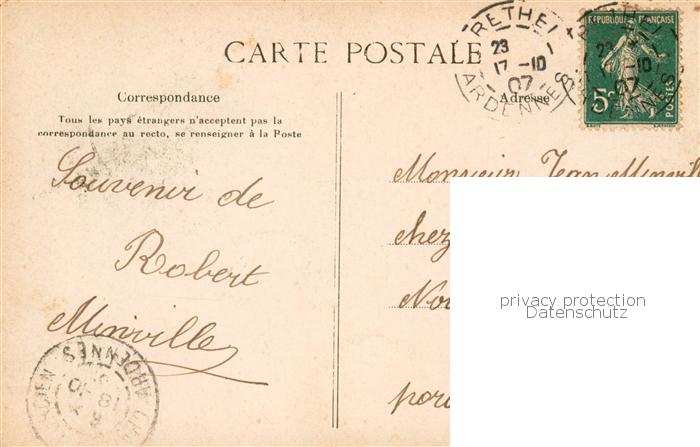 CARTE POSTALE
RETHEL
23
17-10
07
ARDENNES
REPUBLIQUE FRANÇAISE
5c
POSTES
Correspondance
Tous les pays étrangers n'acceptent pas la
correspondance au recto, se renseigner à la Poste
Adresse
Souvenir de
Robert
Minville
Monsieur Jean Minvil
chez
No
por
privacy protection
Datenschutz
ARDENNES